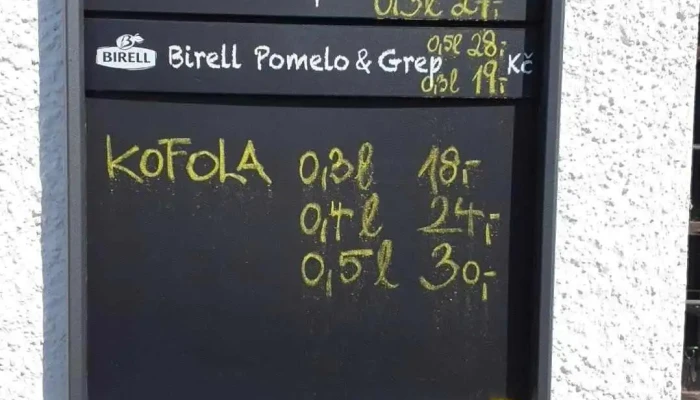 0,3l 27,-
BIRELL Birell Pomelo & Grep 0,5l 28,- Kč
0,3l 19,-
KOFOLA 0,3l 18,-
0,4l 24,-
0,5l 30,-